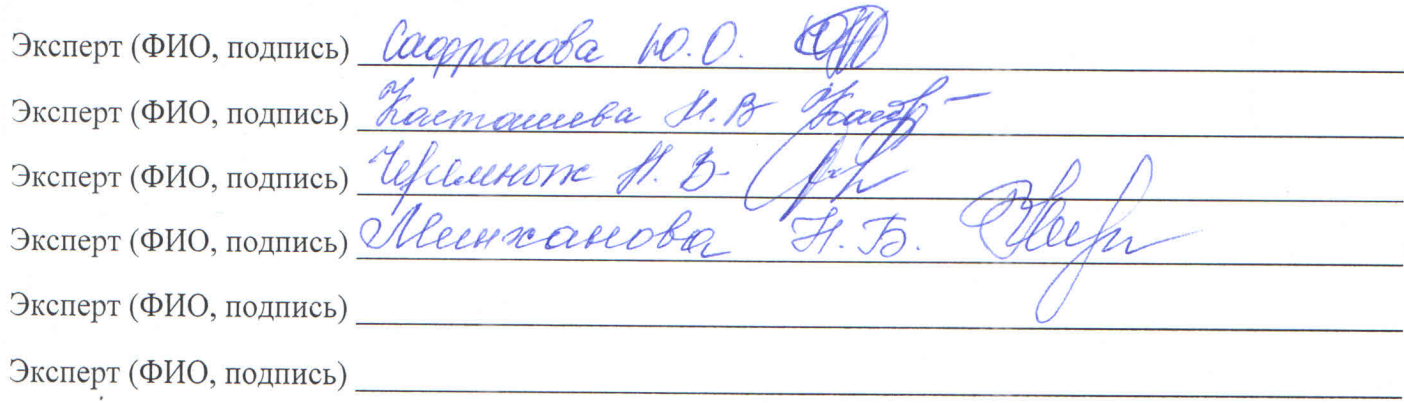 Эксперт (ФИО, подпись) Сафронова Ю.О.
Эксперт (ФИО, подпись) Колташева Н.В
Эксперт (ФИО, подпись) Черемных Н.В.
Эксперт (ФИО, подпись) Минханова Н.Б.
Эксперт (ФИО, подпись)
Эксперт (ФИО, подпись)